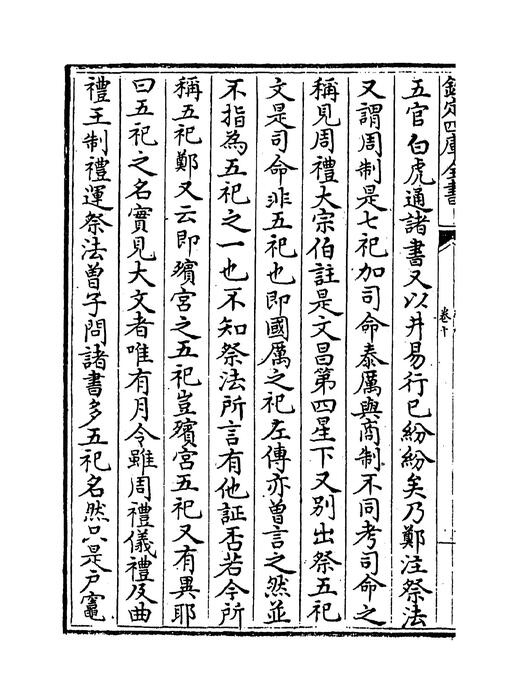 欽定四庫全書
卷十
五官白虎通諸書又以井易行已紛紛矣乃鄭注祭法
又謂周制是七祀加司命泰厲與商制不同考司命之
稱見周禮大宗伯註是文昌第四星下又別出祭五祀
文是司命非五祀也即國厲之祀左傳亦曾言之然並
不指為五祀之一也不知祭法所言有他証否若今所
稱五祀鄭又云即殯宮之五祀豈殯宮五祀又有異耶
曰五祀之名實見大文者唯有月令雖周禮儀禮及曲
禮王制禮運祭法曾子問諸書多五祀名然只是戶竈